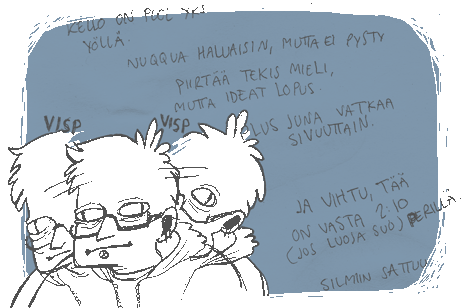 KELLO ON PUOL YKS
YÖLLÄ.
NUQQUA HALUAISIN, MUTTA EI PYSTY
PIIRTÄÄ TEKIS MIELI,
MUTTA IDEAT LOPUS.
VISP
VISP
PLUS JUNA VATKAA
SIVUUTTAIN.
JA VIHTU, TÄÄ
ON VASTA 2:10
(JOS LUOJA SUO) PERILLÄ.
SILMIIN SATTUU